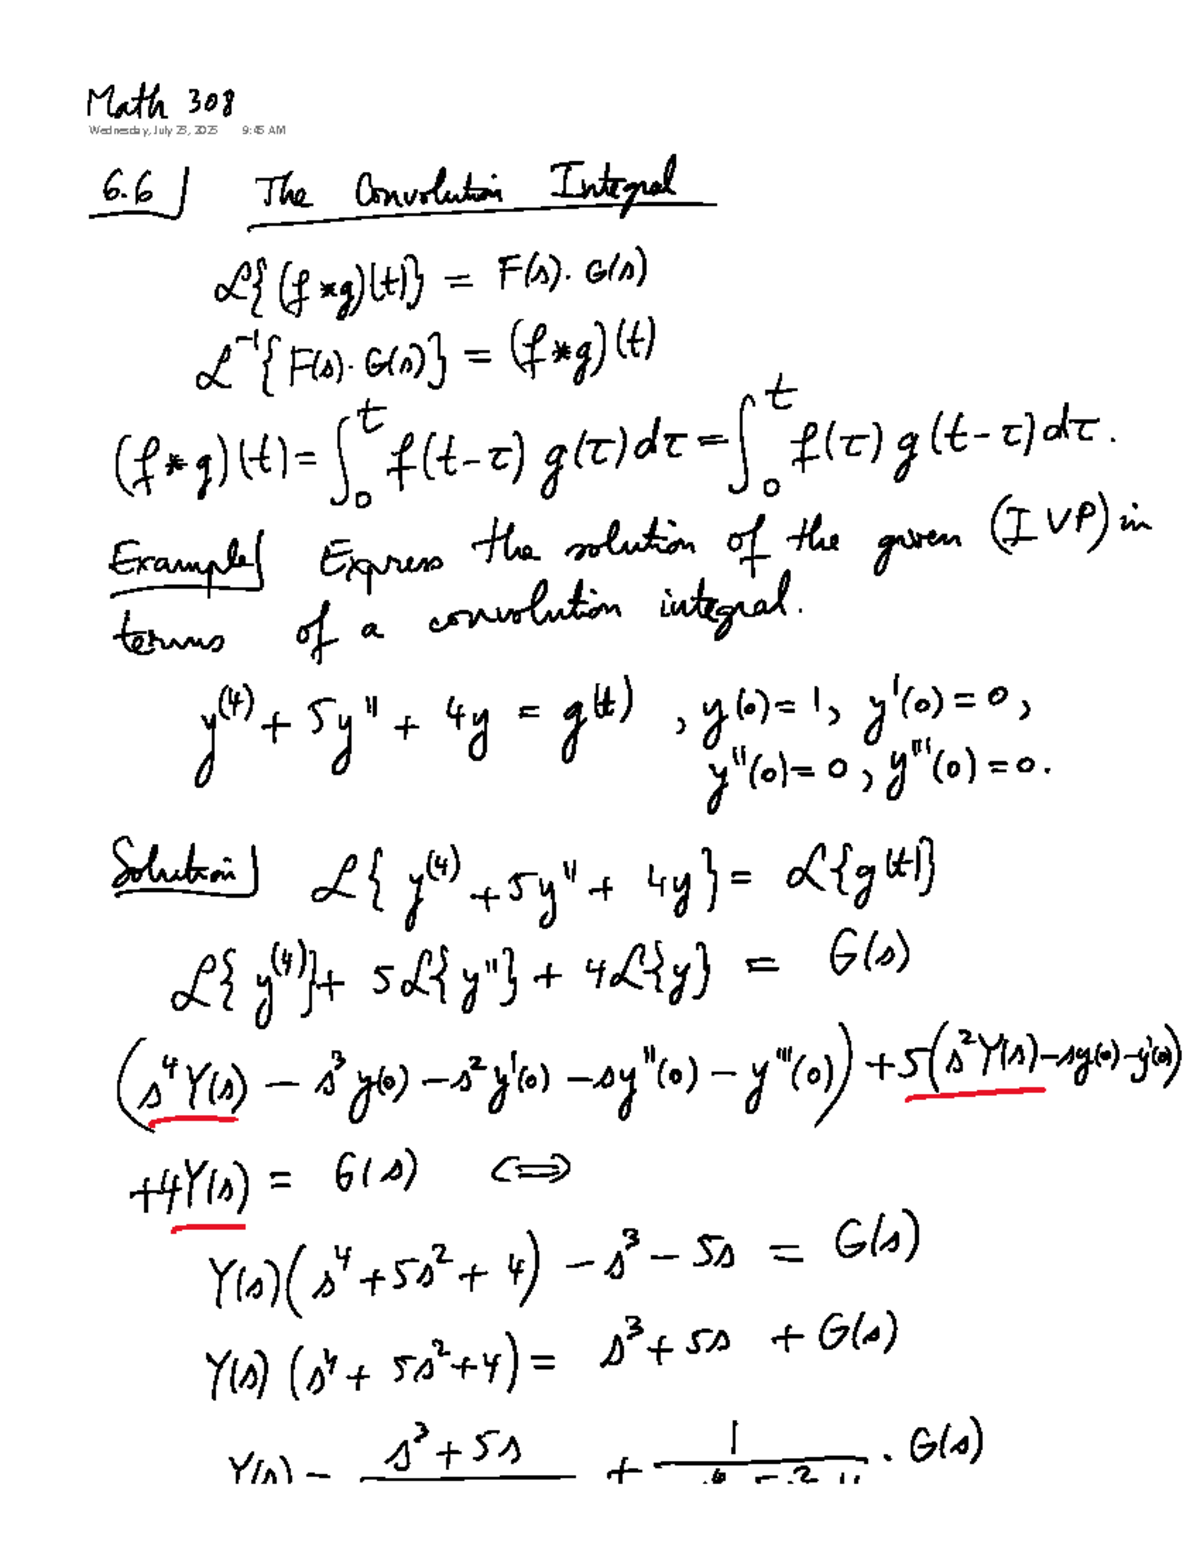 Math 308
Wednesday, July 23, 2025 9:45 AM
6.6 The Convolution Integral
ℒ{(f*g)(t)} = F(s)·G(s)
ℒ⁻¹{F(s)·G(s)} = (f*g)(t)
(f*g)(t) = ∫₀ᵗ f(t-τ) g(τ)dτ = ∫₀ᵗ f(τ) g(t-τ)dτ.
Example Express the solution of the given (IVP) in
terms of a convolution integral.
y⁽⁴⁾ + 5y'' + 4y = g(t) , y(0)=1, y'(0)=0,
y''(0)=0, y'''(0)=0.
Solution ℒ{y⁽⁴⁾ + 5y'' + 4y} = ℒ{g(t)}
ℒ{y⁽⁴⁾} + 5ℒ{y''} + 4ℒ{y} = G(s)
(s⁴Y(s) - s³y(0) - s²y'(0) - sy''(0) - y'''(0)) + 5(s²Y(s) - sy(0) - y'(0))
+4Y(s) = G(s) ⟺
Y(s)(s⁴ + 5s² + 4) - s³ - 5s = G(s)
Y(s) (s⁴ + 5s² + 4) = s³ + 5s + G(s)
s³ + 5s + 1 · G(s)